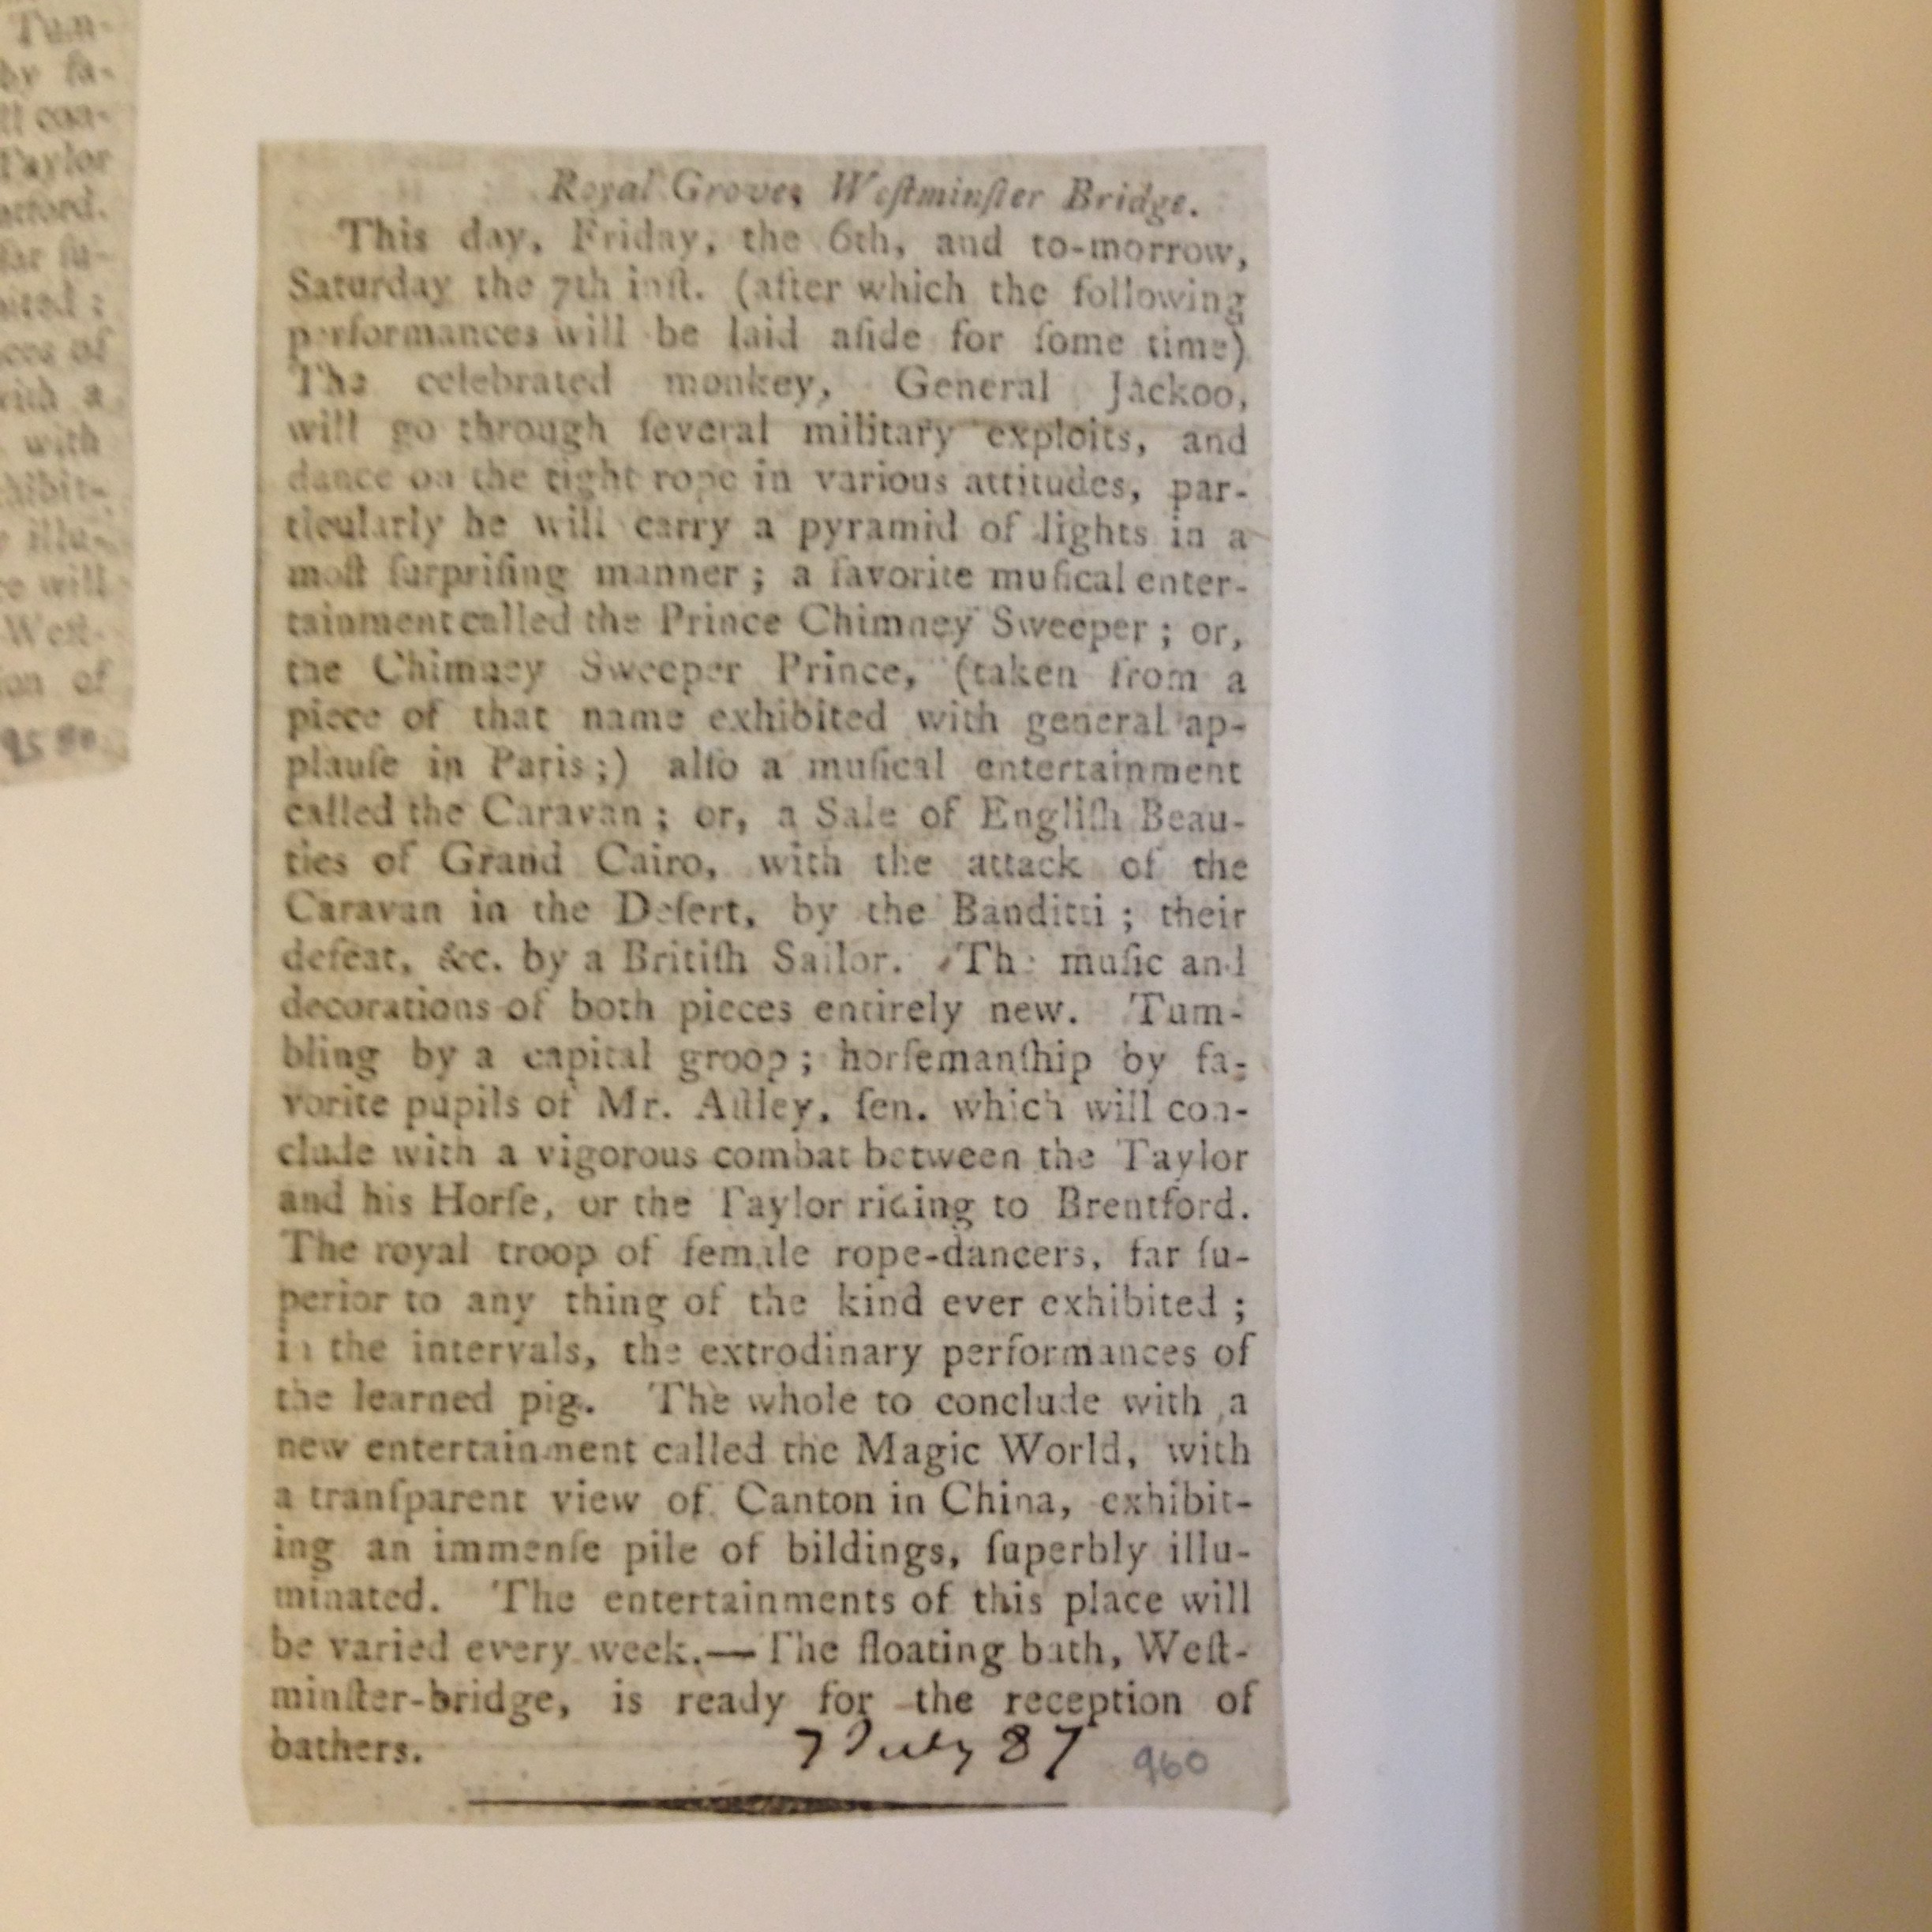 Tum-
by fa-
ll con-
Taylor
ntford.
far ſu-
bited ;
nces of
with a
with
xhibit-
y illu-
ce will
Weſt-
ion of
Royal Grove, Weſtminſter Bridge.
This day, Friday, the 6th, and to-morrow,
Saturday the 7th inſt. (after which the following
performances will be laid aſide for ſome time)
The celebrated monkey, General Jackoo,
will go through ſeveral military exploits, and
dance on the tight rope in various attitudes, par-
ticularly he will carry a pyramid of lights in a
moſt ſurpriſing manner ; a favorite muſical enter-
tainment called the Prince Chimney Sweeper ; or,
the Chimney Sweeper Prince, (taken from a
piece of that name exhibited with general ap-
plauſe in Paris ;) alſo a muſical entertainment
called the Caravan ; or, a Sale of Engliſh Beau-
ties of Grand Cairo, with the attack of the
Caravan in the Deſert, by the Banditti ; their
defeat, &c. by a Britiſh Sailor. The muſic and
decorations of both pieces entirely new. Tum-
bling by a capital groop ; horſemanſhip by fa-
vorite pupils of Mr. Aſtley, ſen. which will con-
clude with a vigorous combat between the Taylor
and his Horſe, or the Taylor riding to Brentford.
The royal troop of female rope-dancers, far ſu-
perior to any thing of the kind ever exhibited ;
in the intervals, the extrodinary performances of
the learned pig. The whole to conclude with a
new entertainment called the Magic World, with
a tranſparent view of Canton in China, exhibit-
ing an immenſe pile of bildings, ſuperbly illu-
minated. The entertainments of this place will
be varied every week.—The floating bath, Weſt-
minſter-bridge, is ready for the reception of
bathers. 7 July 87 960